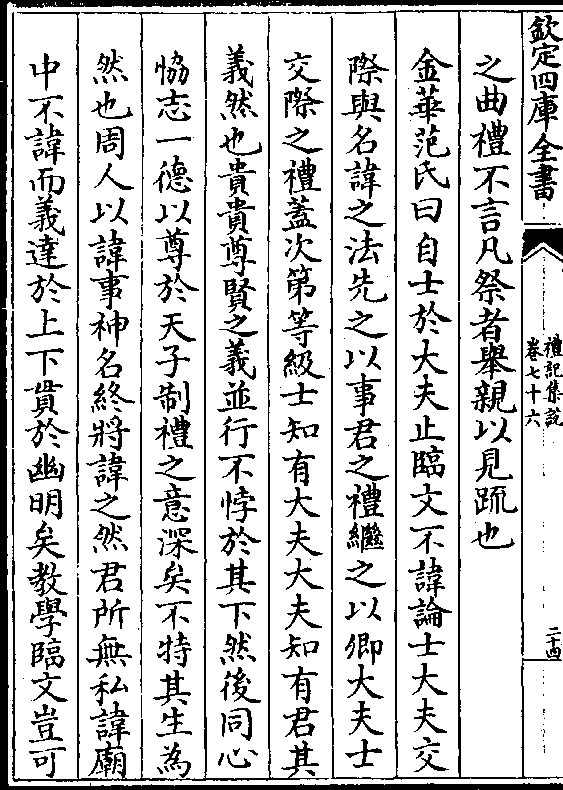 欽定四庫全書
禮記集說
卷七十六
二十四
之曲禮不言凡祭者舉親以見䟽也
金華范氏曰自士於大夫止臨文不諱論士大夫交
際與名諱之法先之以事君之禮繼之以卿大夫士
交際之禮蓋次第等級士知有大夫大夫知有君其
義然也貴貴尊賢之義並行不悖於其下然後同心
恊志一德以尊於天子制禮之意深矣不特其生為
然也周人以諱事神名終將諱之然君所無私諱廟
中不諱而義達於上下貫於幽明矣教學臨文豈可